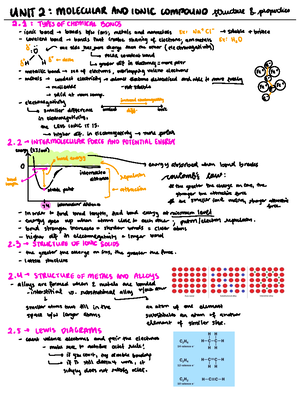 UNIT 2: MOLECULAR AND IONIC COMPOUND structure & properties
2.1: TYPES OF CHEMICAL BONDS
- ionic bond → bonds b/w ions, metals and nonmetals EX: Na⁺Cl⁻ → soluble + brittle
- covalent bond → bonds that involve sharing of electrons, nonmetals EX: H₂O
one side has more charge than the other (electronegativity)
polar covalent bond
greater diff in electroneg = more polar
- metallic bond → sea of electrons, overlapping valence electrons
- metals → conduct electricity → valence electrons delocalized and able to move freely
→ malleable
→ solid at room temp.
- electronegativity
smaller difference
in electronegativity,
the LESS IONIC IT IS.
→ higher diff. in electronegativity → more polar
2.2 - INTERMOLECULAR FORCE AND POTENTIAL ENERGY
energy (kJ/mol)
bond energy
energy absorbed when bond breaks
internuclear
distance
repulsion
attraction
bond
length
stable point
coulomb's law:
the greater the charge on ions, the
stronger the attraction force
internuclear distance
- In order to find bond length, and bond energy → minimum level
- energy goes up when atoms close to each other; proton/electron repulsion.
- bond strength increases → shorter bonds = closer atoms
- higher diff in electronegativity = longer bond
2.3 → STRUCTURE OF IONIC SOLIDS
- the greater the charge on ions, the greater the force.
- lattice structure
2.4 → STRUCTURE OF METALS AND ALLOYS
- Alloys are formed when 2 metals are bonded
- interstitial vs. substitutional alloy
smaller atoms can fill in the
space b/w larger atoms
an atom of one element
substitutes an atom of another
element of similar size.
2.5 → LEWIS DIAGRAMS
- count valence electrons and pair the electrons
- make sure to satisfy octet rule!
→ if you can't, try double bonding
→ if it still doesn't work, it
simply does not satisfy rule.
C₂H₆
C₂H₄
C₂H₂